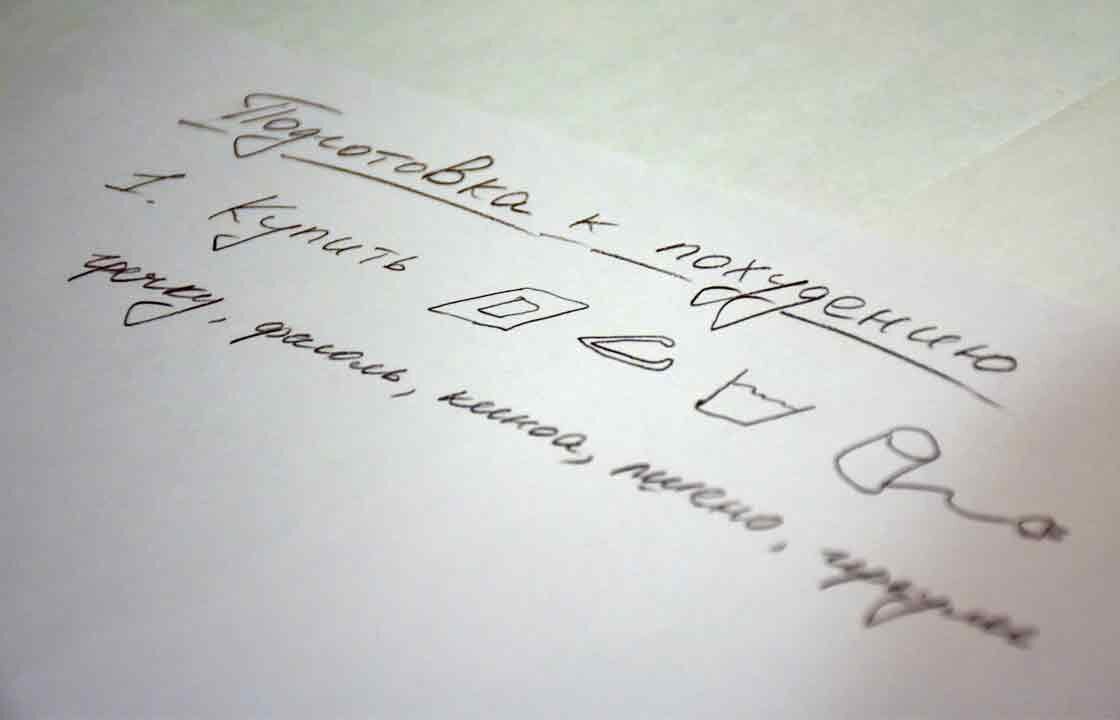 Подготовка к похудению
1. Купить
гречку, фасоль, киноа, пшено,